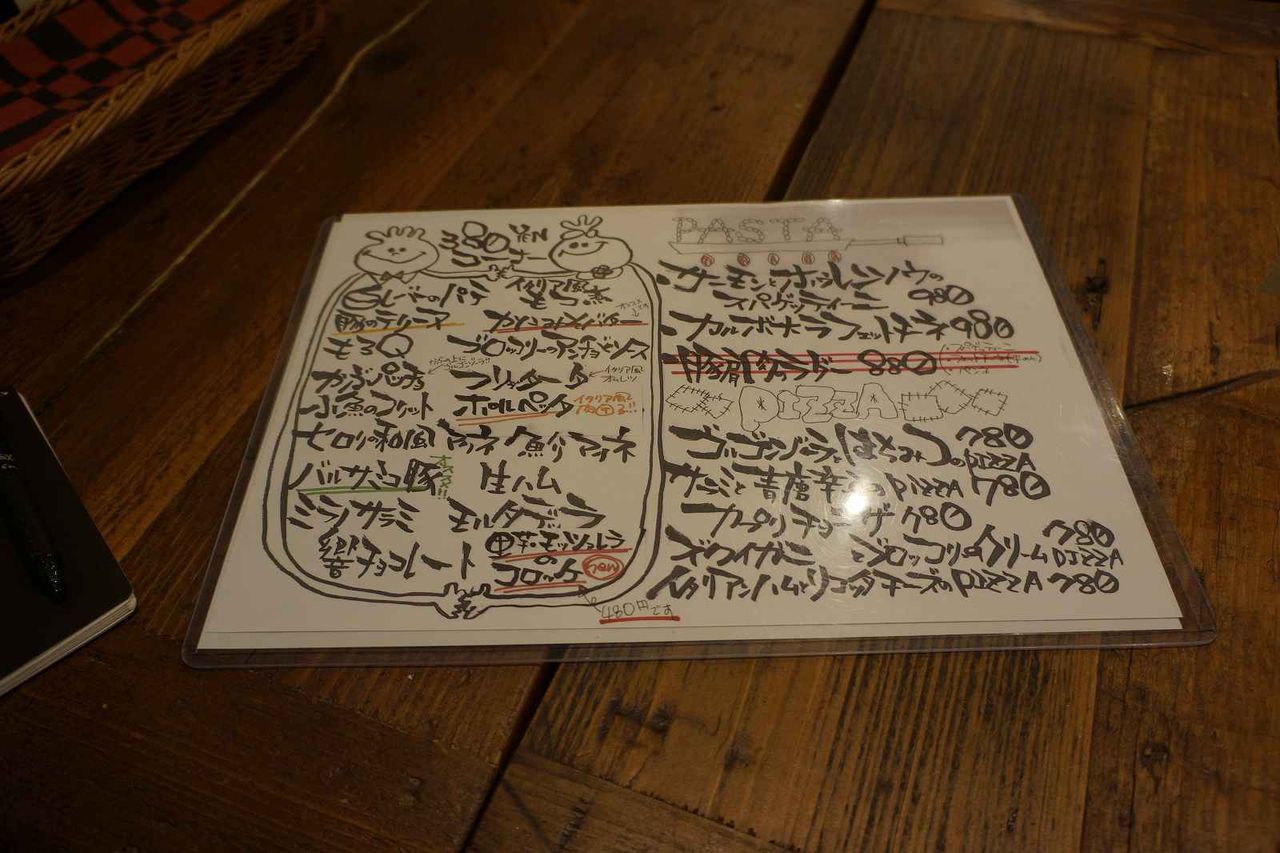 380 YEN
コーナー
レバーのパテ イタリア風もつ煮
豚のテリーヌ
もろQ ブロッコリーのアンチョビソース
フリッタータ
イタリア風オムレツ
小魚のフリット ポルペッタ
イタリア風肉団子!!
セロリの和風マリネ 魚介マリネ
バルサミコ豚 生ハム
オススメ!!
ミラノサラミ モルタデッラ
のコロッケ New
480円です
PASTA
サーモンとホウレンソウの
スパゲッティーニ 980
カルボナーラフェットチーネ 980
880
PIZZA
ゴルゴンゾーラとはちみつのPIZZA 780
サラミと青唐辛子のPIZZA 780
カプリチョーザ 780
ズワイガニとブロッコリーのクリームPIZZA 780
イタリアンハムとリコッタチーズのPIZZA 780